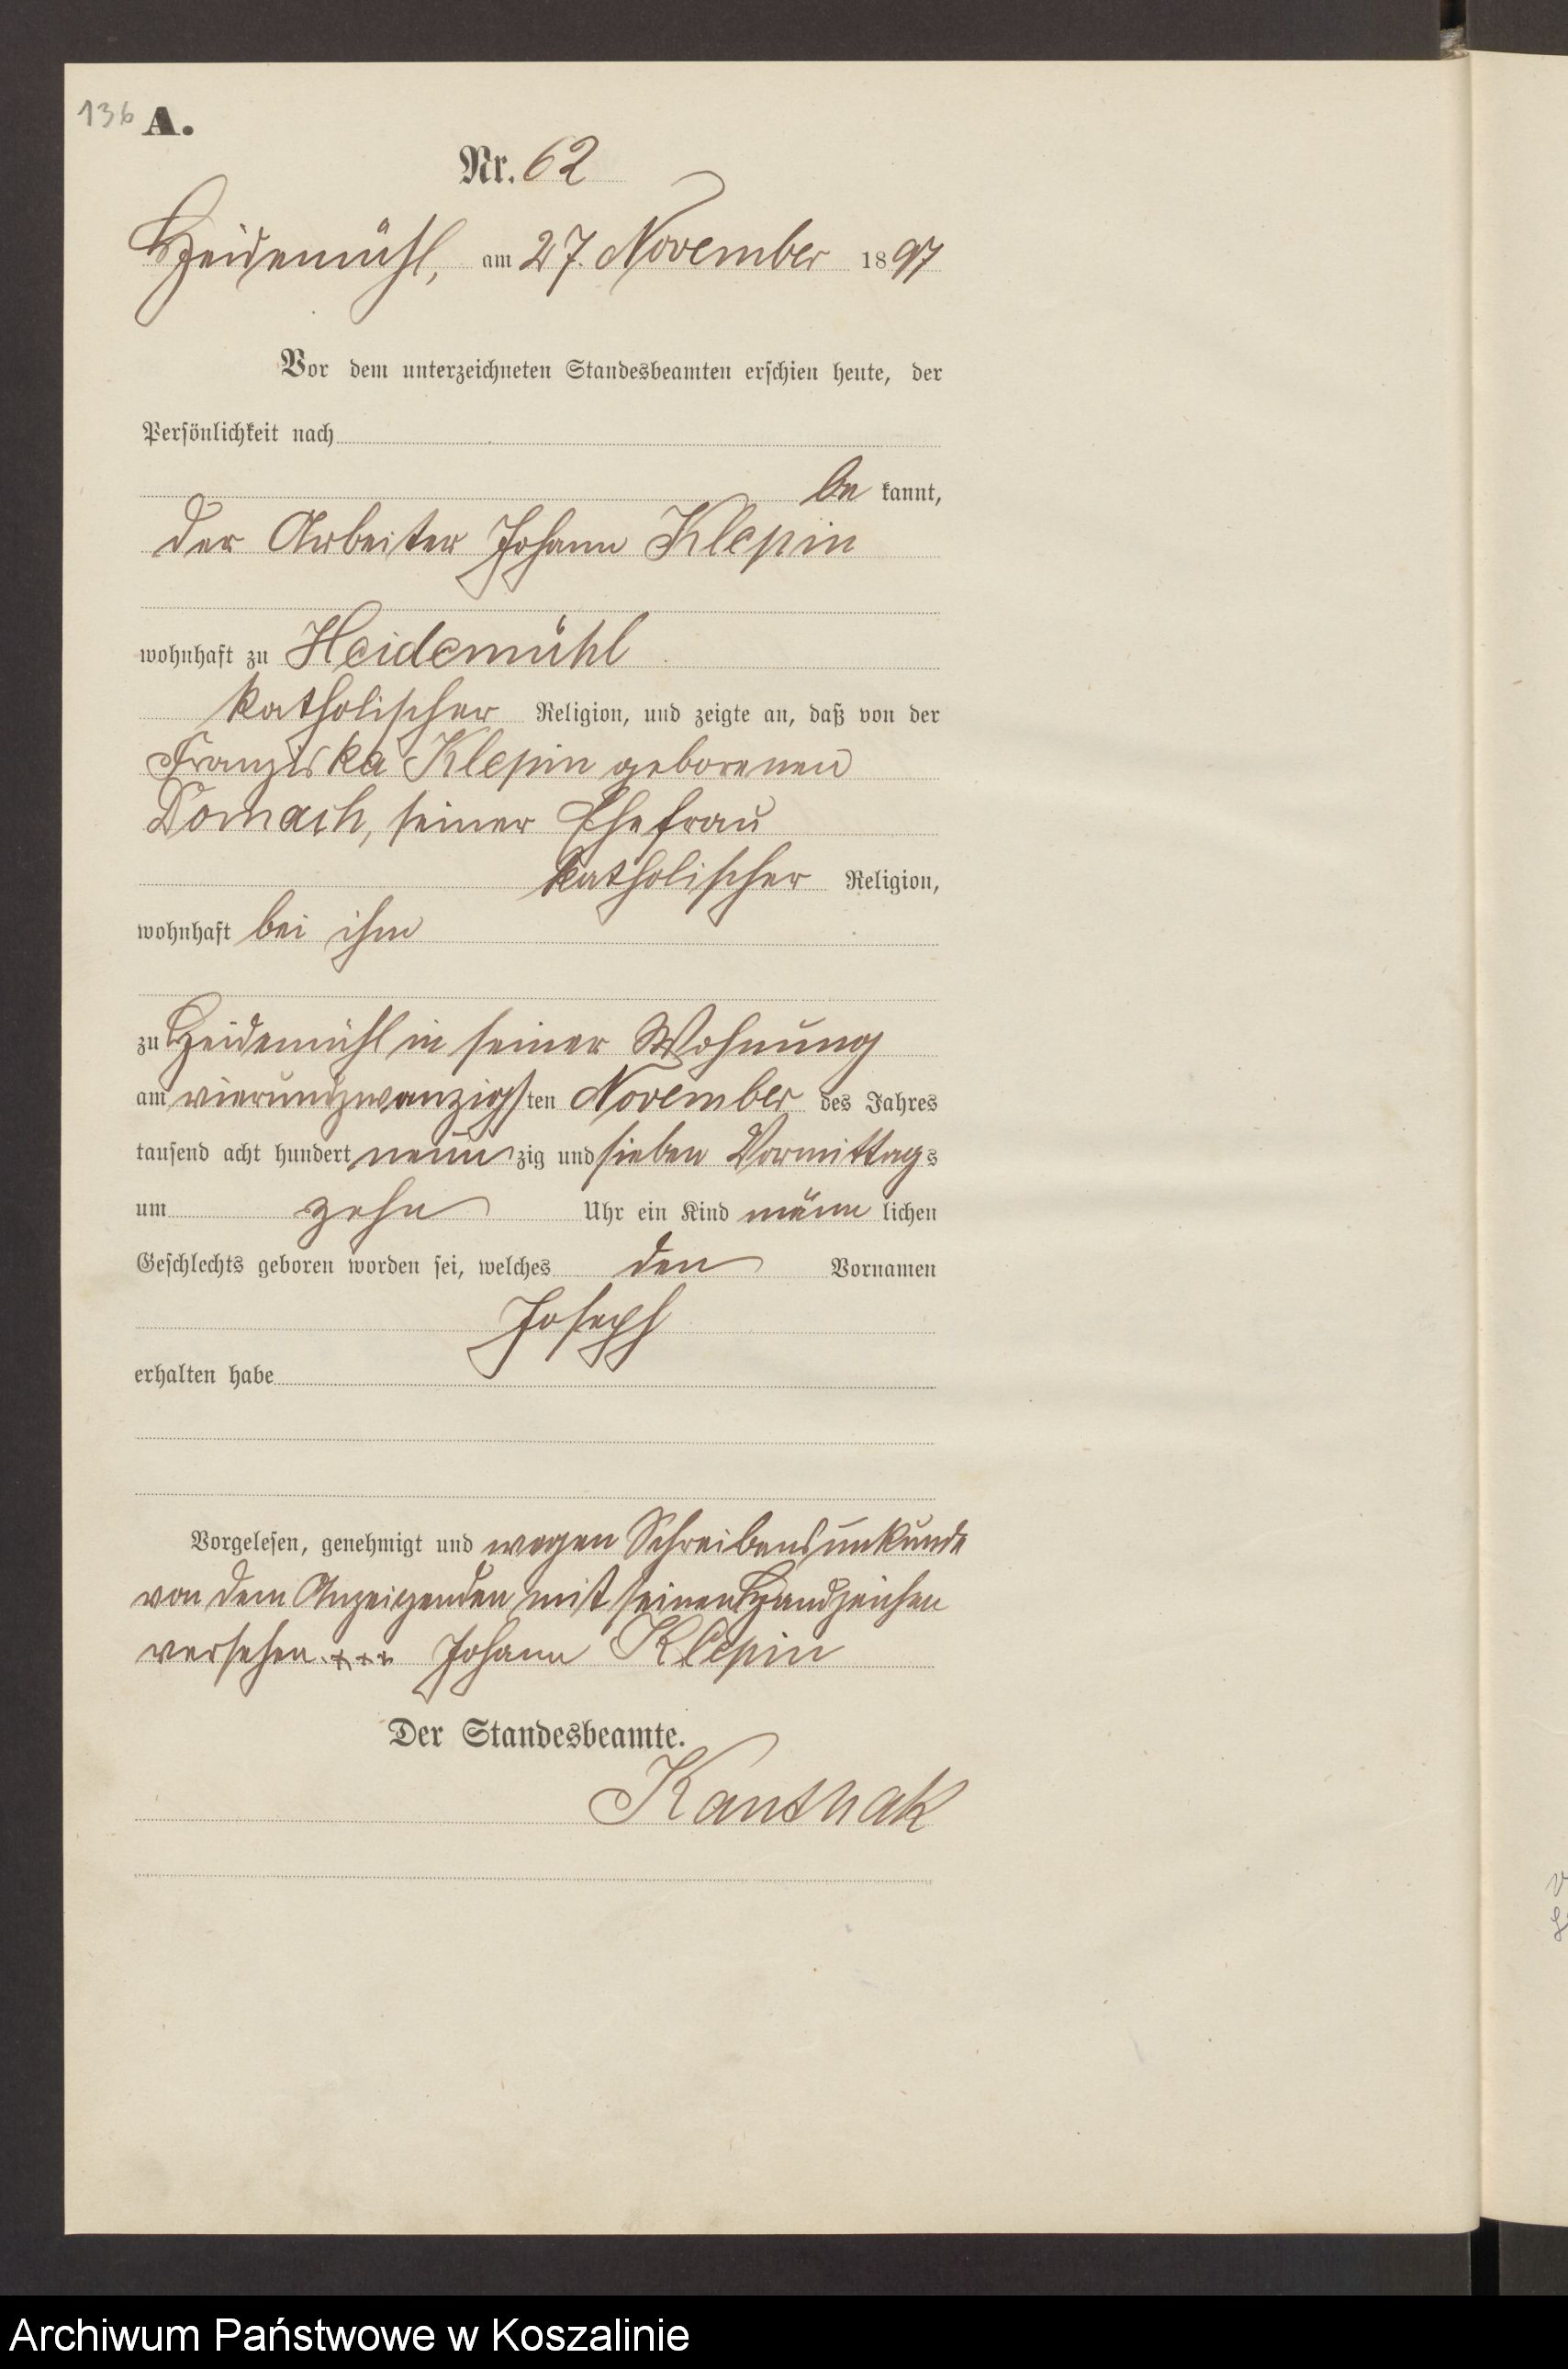 136 A.
Nr. 62
Heidemühl, am 27. November 1897
Vor dem unterzeichneten Standesbeamten erschien heute, der
Persönlichkeit nach
be kannt,
der Arbeiter Johann Klepin
wohnhaft zu Heidemühl
katholischer Religion, und zeigte an, daß von der
Franziska Klepin geborenen
Domach, seiner Ehefrau
katholischer Religion,
wohnhaft bei ihm
zu Heidemühl in seiner Wohnung
am vierundzwanzigsten November des Jahres
tausend acht hundert neunzig und sieben Vormittags
um zehn Uhr ein Kind männlichen
Geschlechts geboren worden sei, welches den Vornamen
Joseph
erhalten habe
Vorgelesen, genehmigt und wegen Schreibensunkunde
von dem Anzeigenden mit seinen Handzeichen
versehen. +++ Johann Klepin
Der Standesbeamte.
Kanthak
Archiwum Państwowe w Koszalinie